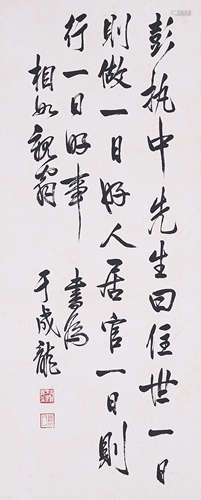 彭执中先生曰住世一日
則做一日好人居官一日則
行一日好事
相如親翁
书为
于成龍